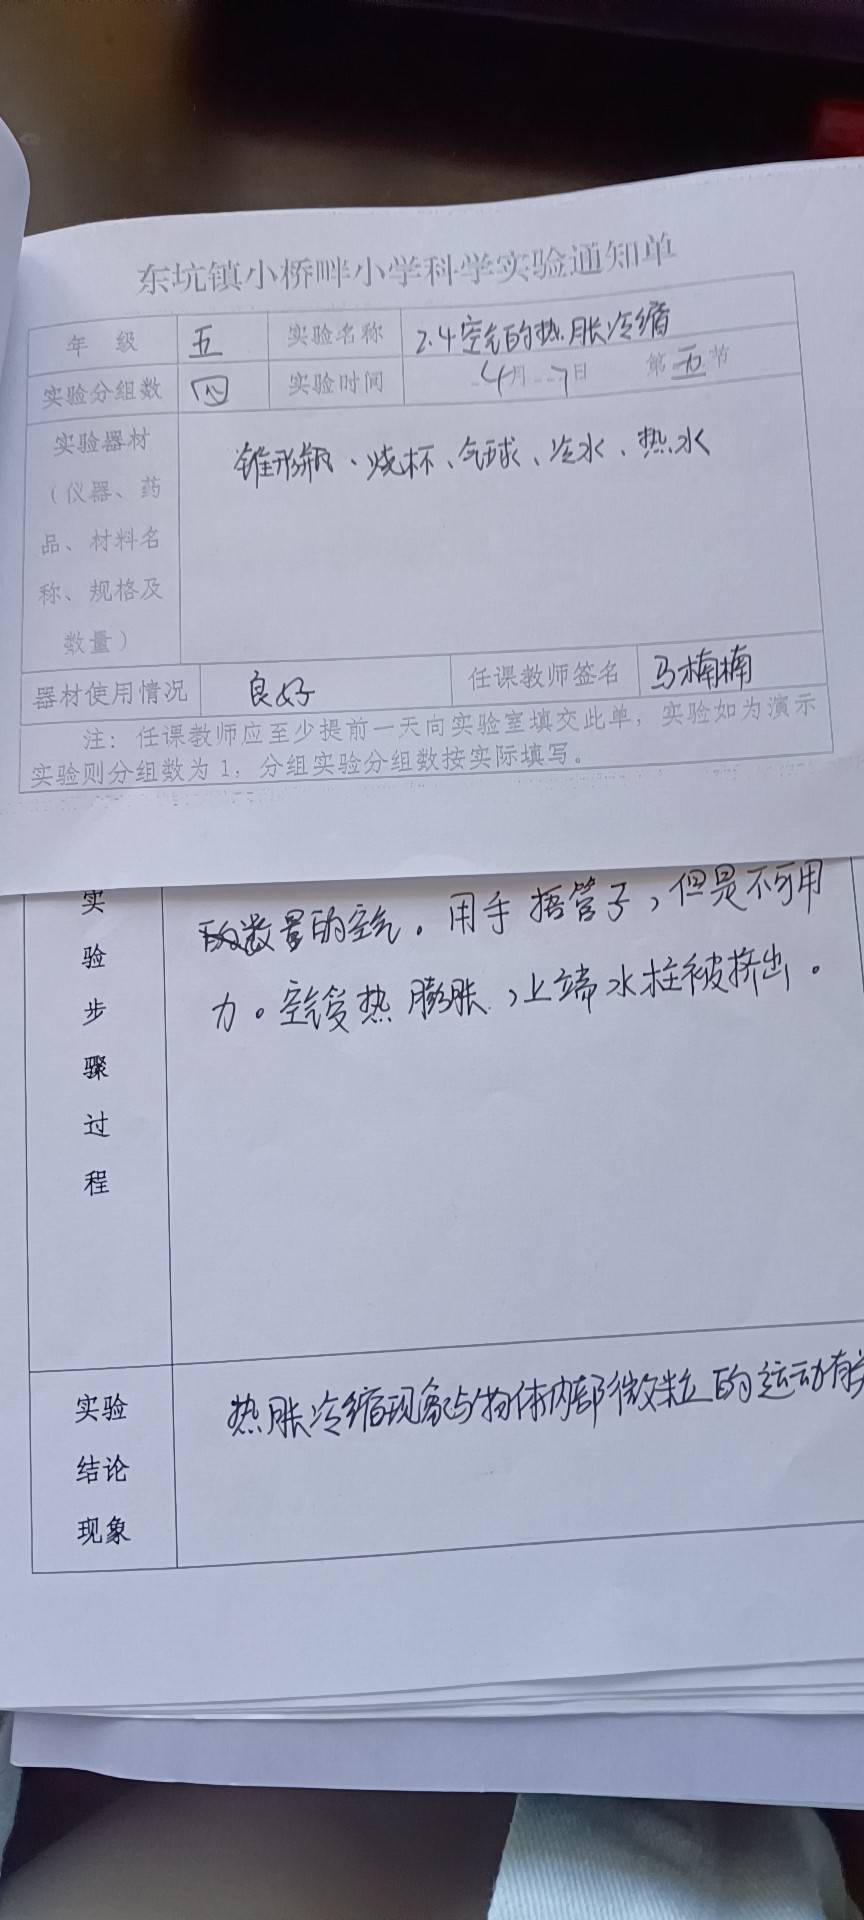 东坑镇小桥畔小学科学实验通知单
年 级 五 实验名称 2.4空气的热胀冷缩
实验分组数 四 实验时间 4月7日 第五节
实验器材
锥形瓶、烧杯、气球、冷水、热水
(仪器、药
品、材料名
称、规格及
数量)
器材使用情况 良好 任课教师签名 马楠楠
注:任课教师应至少提前一天向实验室填交此单,实验如为演示
实验则分组数为1,分组实验分组数按实际填写。
实
验
步
骤
过
程
数量的空气。用手捂管子,但是不可用
力。空气受热膨胀,上端水柱被挤出。
实验
结论
现象
热胀冷缩现象与物体内部微粒的运动有关